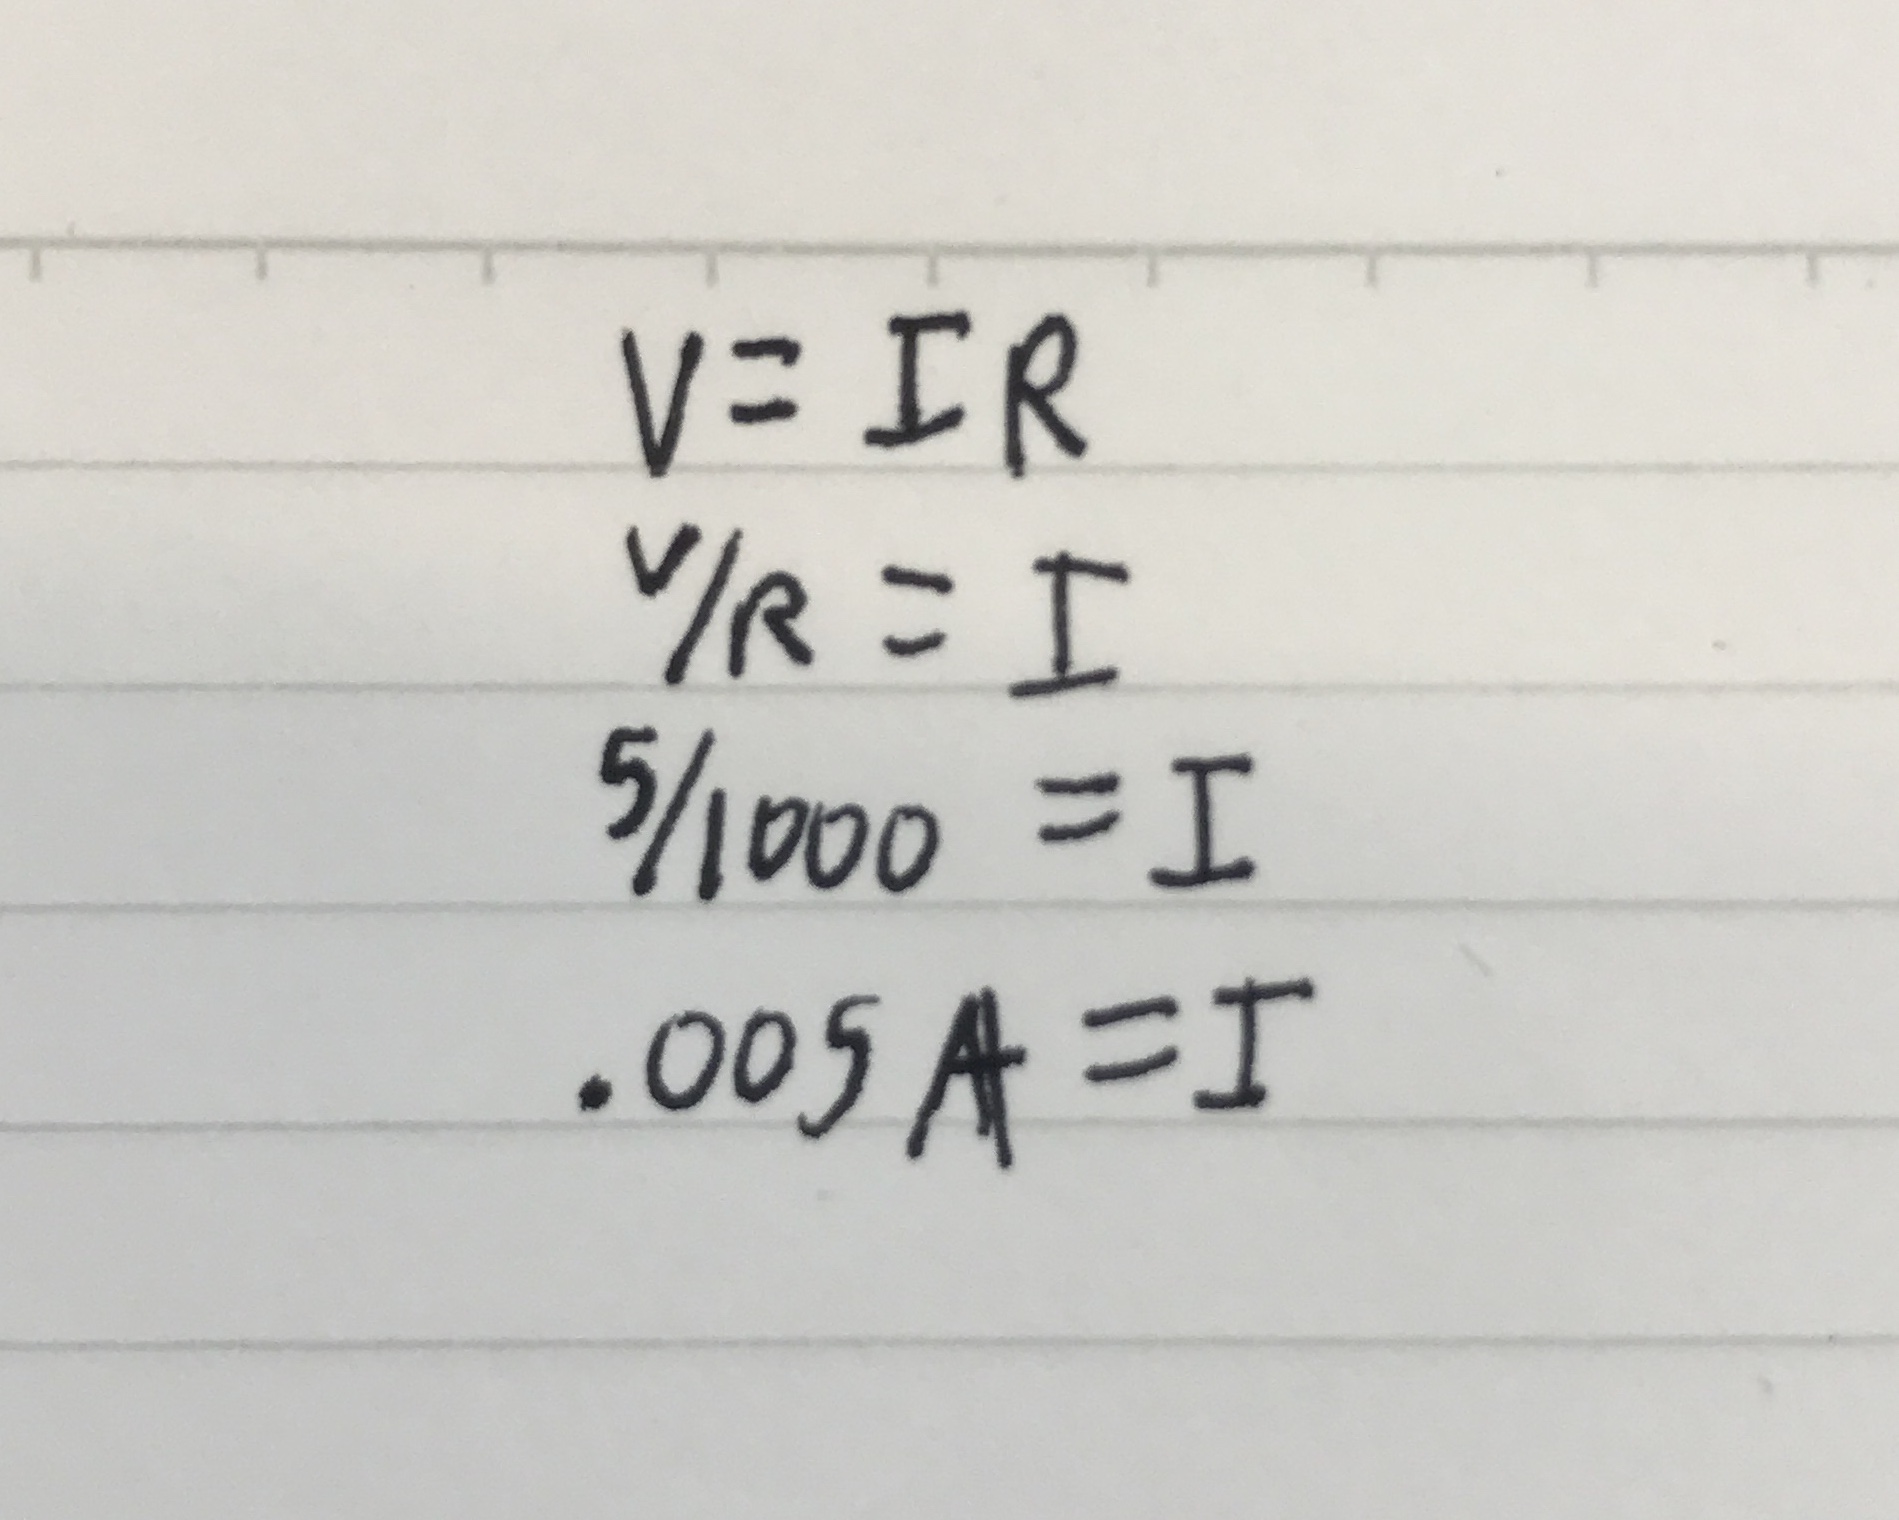 V = IR
V/R = I
5/1000 = I
.005 A = I